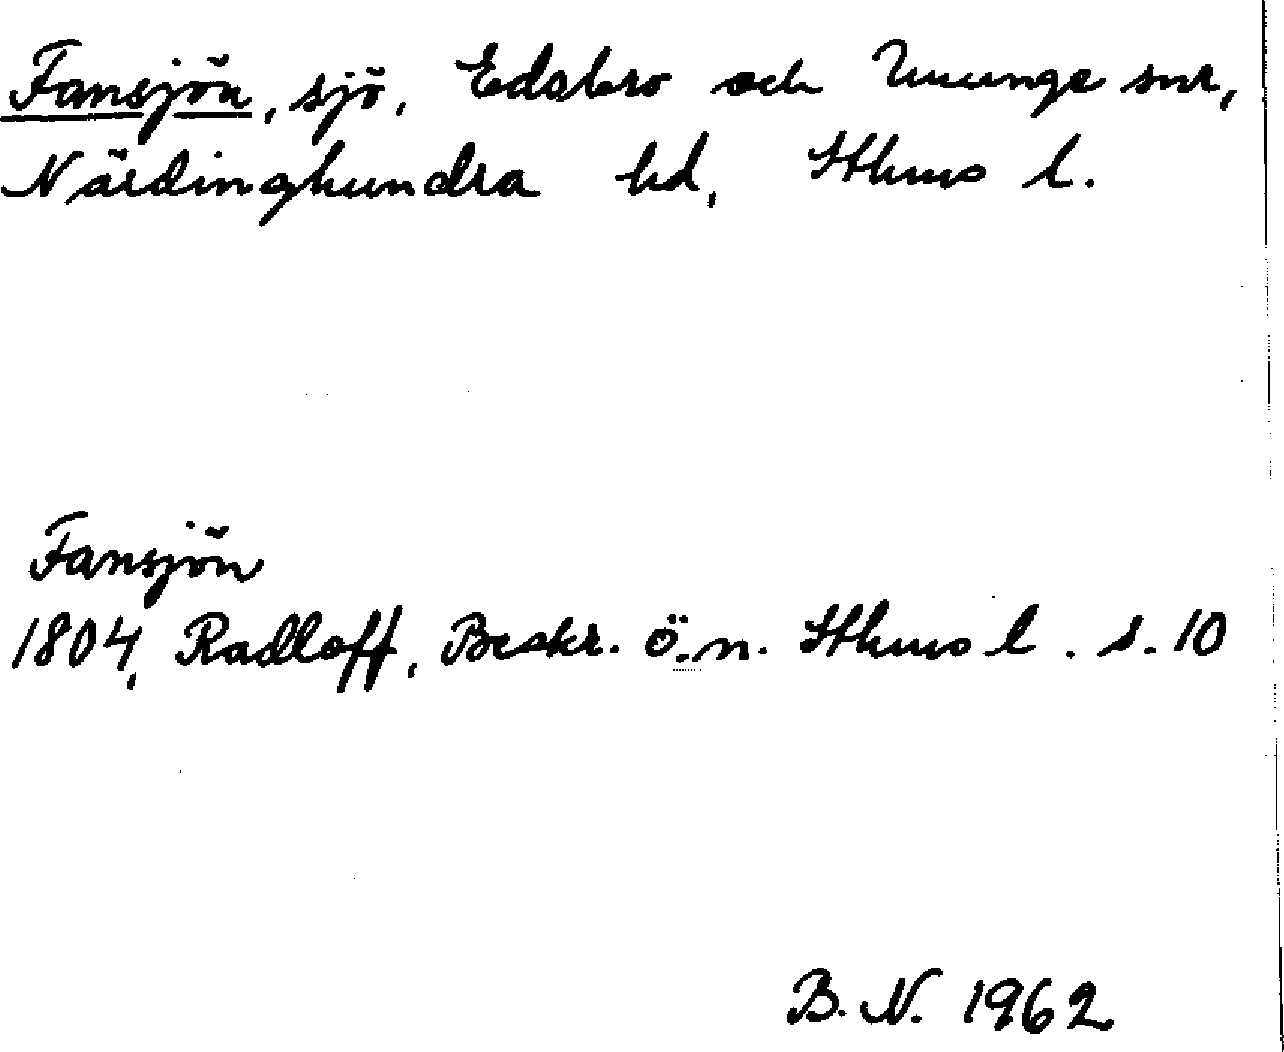 Fansjön, sjö, Edsbro och Ununge snr,
Närdinghundra hd, Sthms l.
Fansjön
1804, Radloff, Beskr. ö. n. Sthms l. s. 10
B. N. 1962